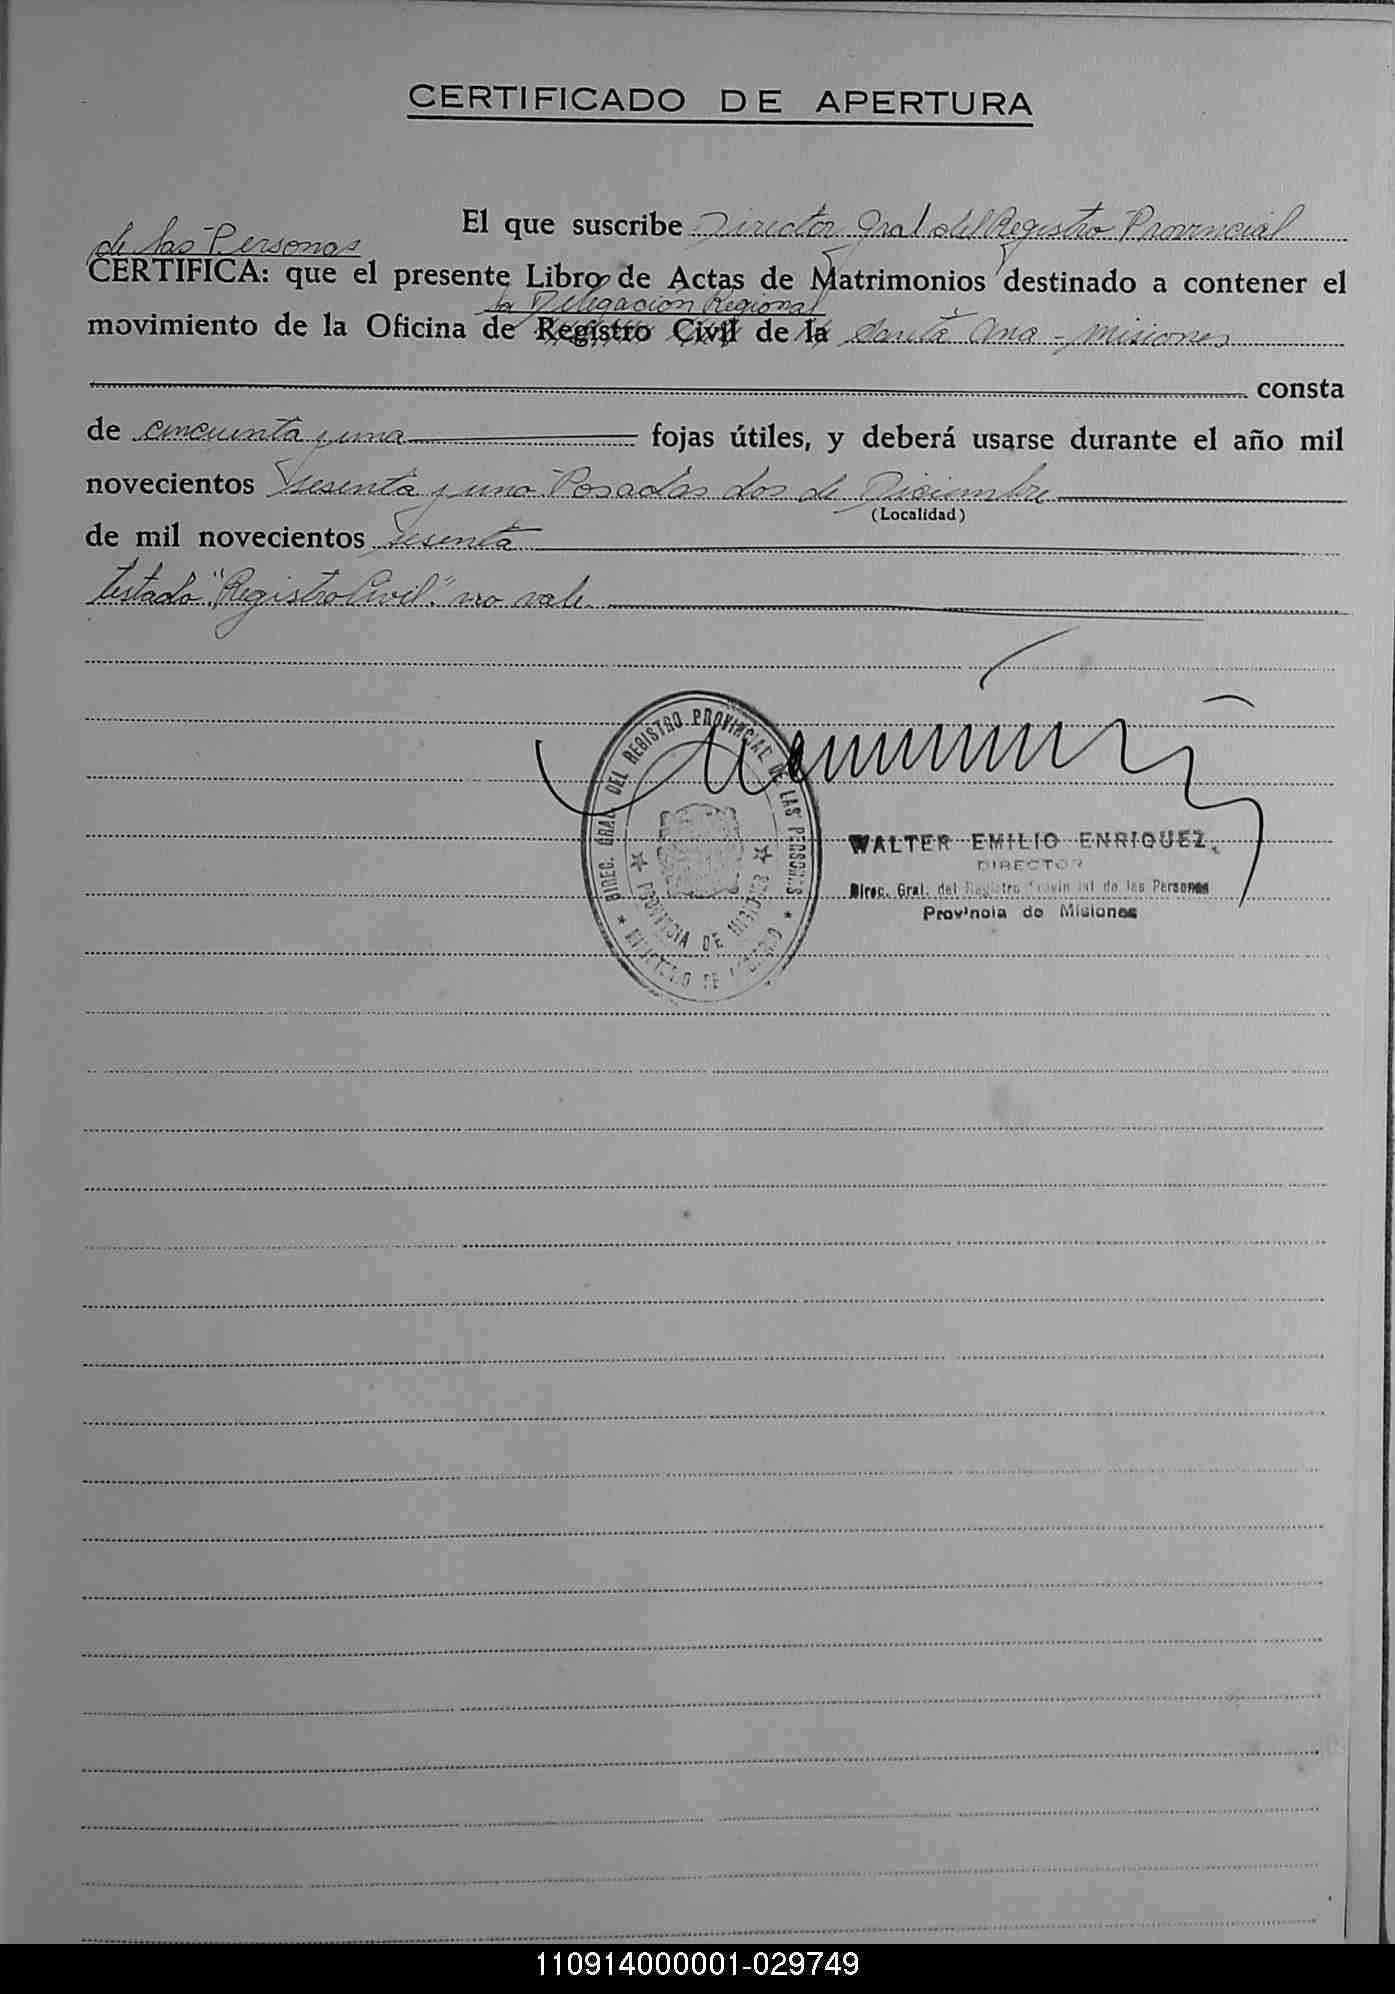 CERTIFICADO DE APERTURA
El que suscribe Director Gral del Registro Provincial
de las Personas
CERTIFICA: que el presente Libro de Actas de Matrimonios destinado a contener el
la Delegación Regional
movimiento de la Oficina de Registro Civil de la Santa Ana - Misiones
consta
de cincuenta y una fojas útiles, y deberá usarse durante el año mil
novecientos sesenta y uno Posadas dos de Diciembre
(Localidad)
de mil novecientos sesenta
testado "Registro Civil" no vale
DIREC. GRAL. DEL REGISTRO PROVINCIAL DE LAS PERSONAS
PROVINCIA DE MISIONES
WALTER EMILIO ENRIQUEZ
DIRECTOR
Direc. Gral. del Registro Provincial de las Personas
Provincia de Misiones
110914000001-029749